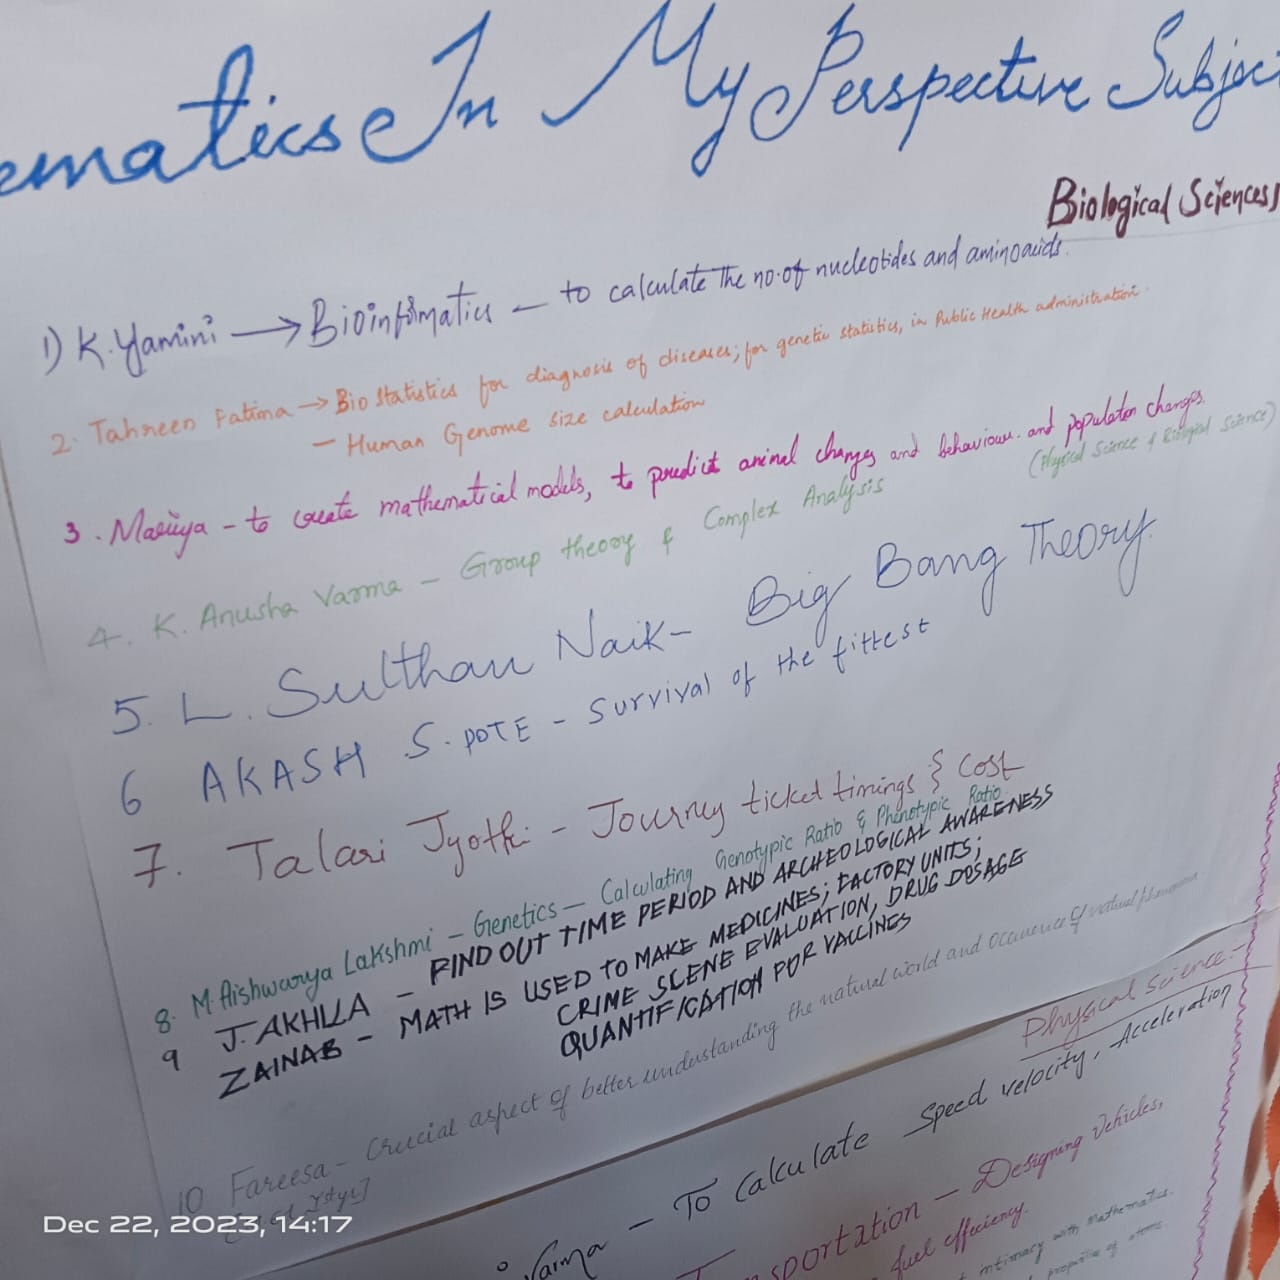 ematics In My Perspective Subjec
Biological Sciences
1) K. Yamini → Bioinfirmatics – to calculate the no. of nucleotides and aminoacids.
2. Tahneen Fatima → Bio statistics for diagnosis of diseases; for genetic statistics, in Public Health administration.
– Human Genome size calculation
3. – to create mathematical models, to predict animal changes and behaviour and population changes.
(Physical Science & Biological Science)
4. K. Anusha Varma – Group theory & Complex Analysis
5. L. Sulthan Naik – Big Bang Theory.
6 AKASH S. POTE – Survival of the fittest
7. Talari Jyothi – Journey ticket timings & Cost
8. M. Aishwarya Lakshmi – Genetics – Calculating Genotypic Ratio & Phenotypic Ratio
9 J. AKHILA – FIND OUT TIME PERIOD AND ARCHEOLOGICAL AWARENESS
ZAINAB – MATH IS USED TO MAKE MEDICINES; FACTORY UNITS;
CRIME SCENE EVALUATION, DRUG DOSAGE
QUANTIFICATION FOR VACCINES
10 Fareesa – Crucial aspect of better understanding the natural world and occurence of natural phenomena
Physical Science:-
Varma – To Calculate Speed velocity, Acceleration
sportation – Designing Vehicles,
fuel efficiency.
intimacy with mathematics.
of atoms
Dec 22, 2023, 14:17